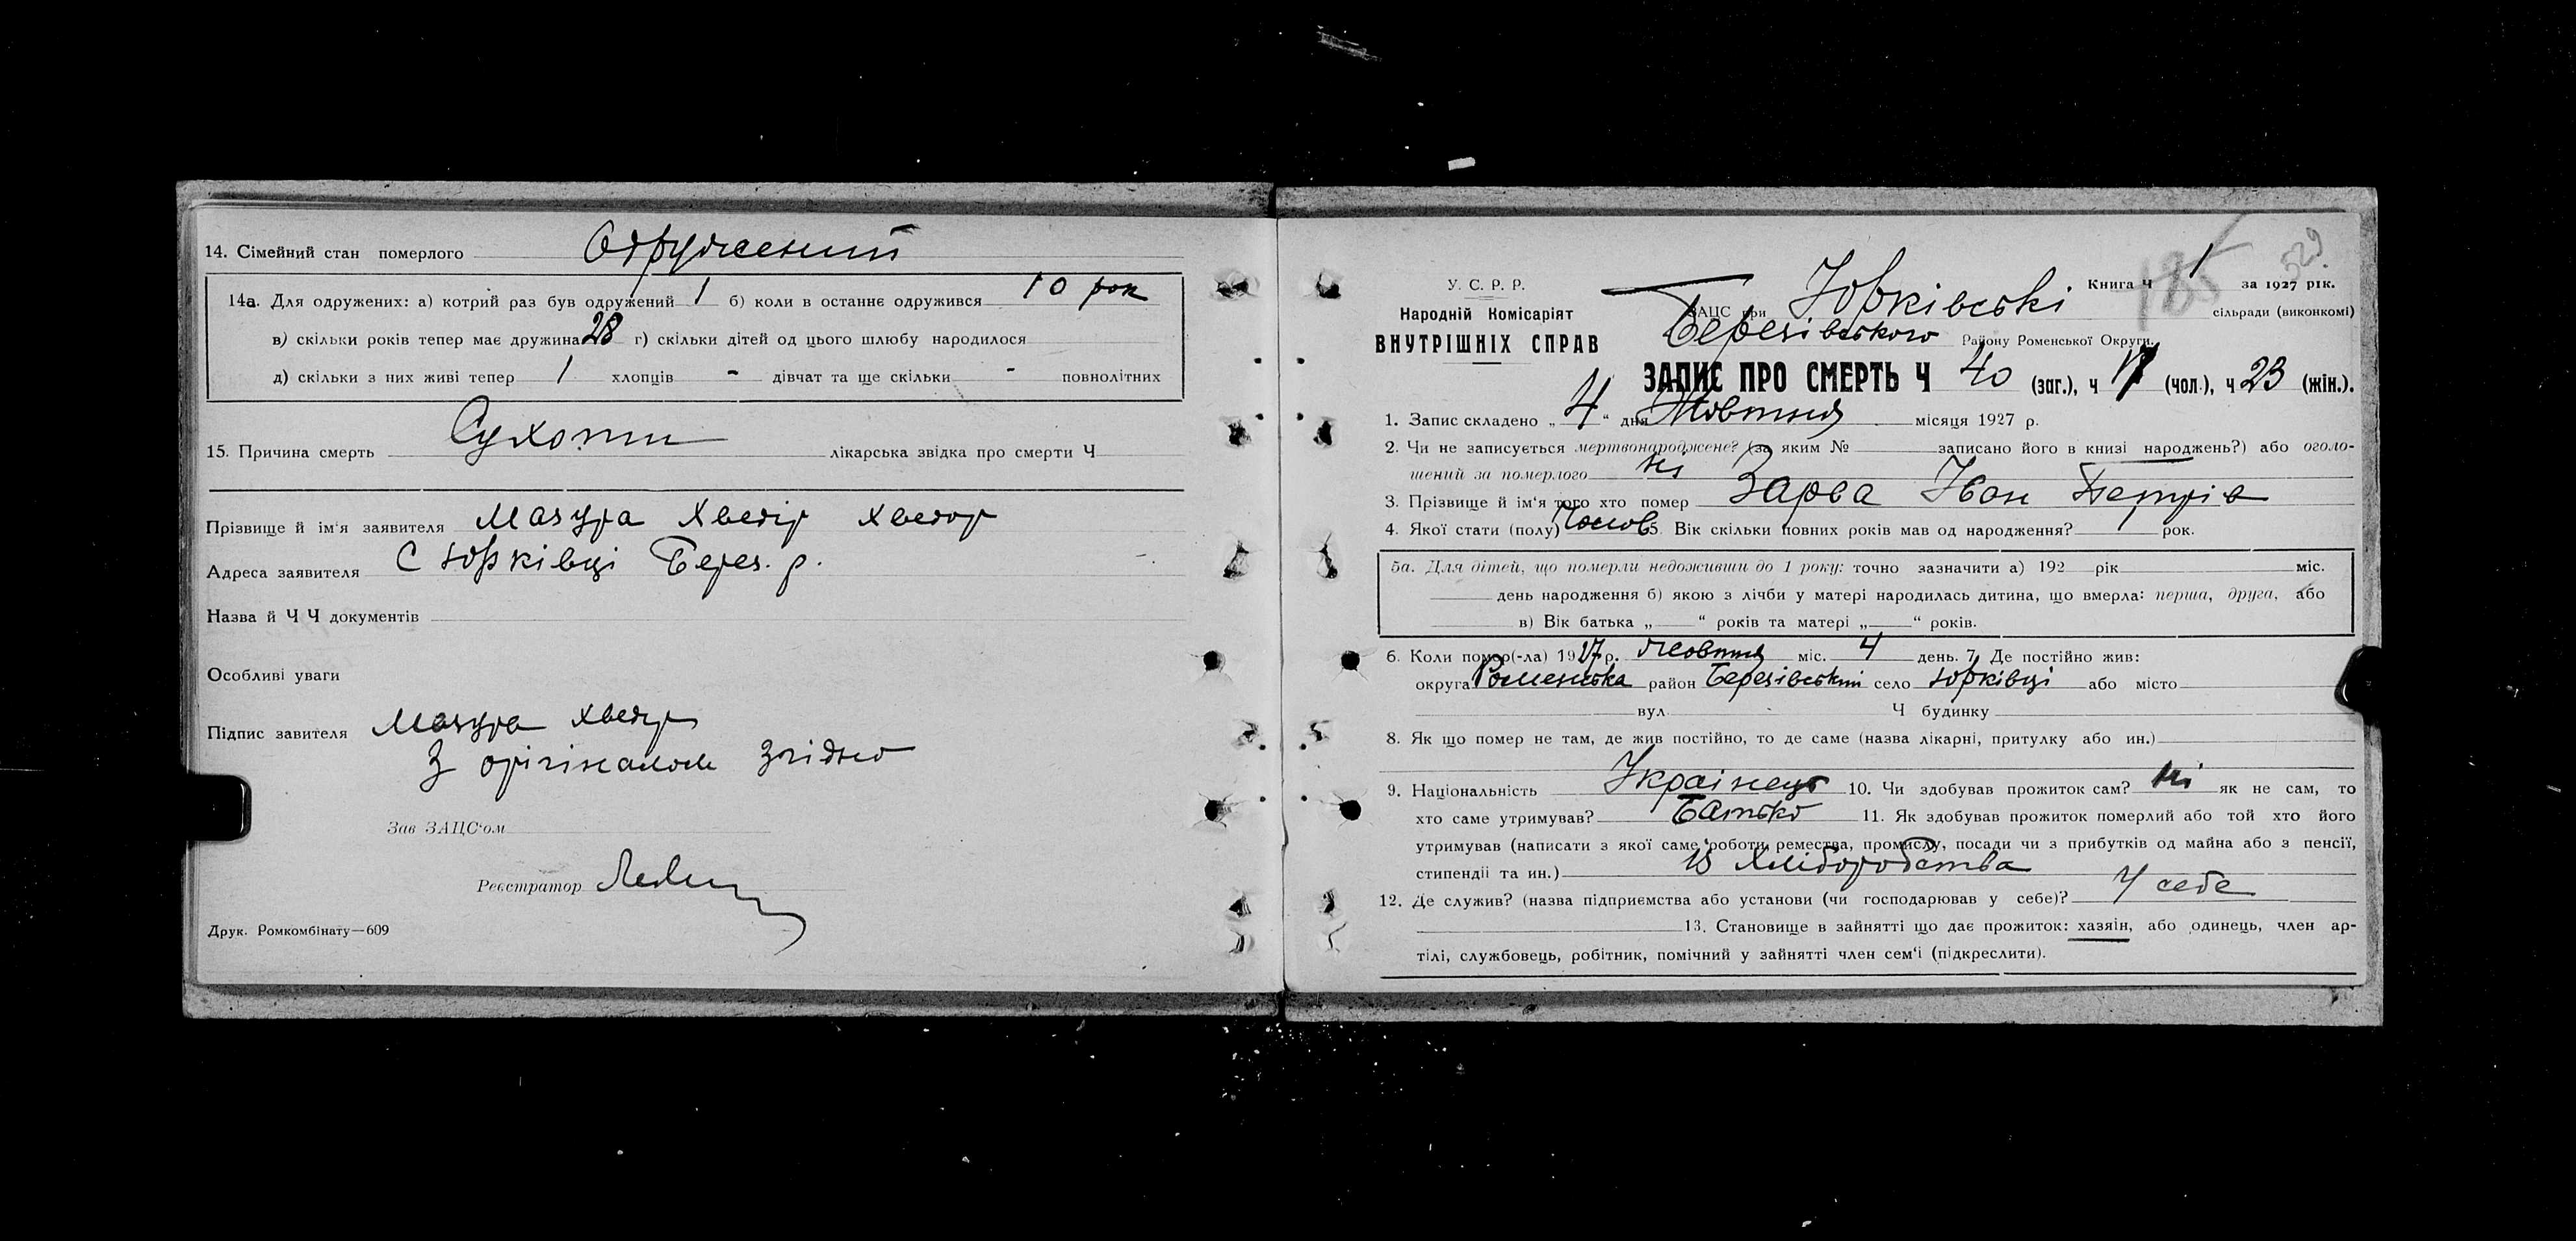 14. Сімейний стан померлого Одружений
14а. Для одружених: а) котрий раз був одружений 1 б) коли в останнє одружився 10 рок
в) скільки років тепер має дружина 28 г) скільки дітей од цього шлюбу народилося
д) скільки з них живі тепер 1 хлопців - дівчат та ще скільки - повнолітних
15. Причина смерть Сухоти лікарська звідка про смерти Ч
Прізвище й ім'я заявителя Мазура Хведір Хведор
Адреса заявителя с Юрківці Берез. р.
Назва й Ч Ч документів
Особливі уваги
Підпис завителя Мазура Хведір
З орігіналом згідно
Зав ЗАЦС'ом
Реєстратор
Друк. Ромкомбінату—609
185 529.
У. С. Р. Р.
Народній Комісаріят
ВНУТРІШНІХ СПРАВ
Книга Ч 1 за 1927 рік.
ЗАЦС при Юрківські сільради (виконкомі)
Березівського Району Роменської Округи.
ЗАПИС ПРО СМЕРТЬ Ч 40 (заг.), ч 17 (чол.), ч 23 (жін.).
1. Запис складено „ 4 “ дня Жовтня місяця 1927 р.
2. Чи не записується мертвонароджене? (за яким № записано його в книзі народжень?) або оголо-
шений за померлого ні
3. Прізвище й ім'я того хто помер Зарва Іван Петрів
4. Якої стати (полу) Чолов 5. Вік скільки повних років мав од народження? 1 рок.
5а. Для дітей, що померли недоживши до 1 року: точно зазначити а) 192 рік міс.
день народження б) якою з лічби у матері народилась дитина, що вмерла: перша, друга, або
в) Вік батька „ “ років та матері „ “ років.
6. Коли помор(-ла) 1927 р. Жовтня міс. 4 день. 7. Де постійно жив:
округа Роменська район Березівський село Юрківці або місто
вул. Ч будинку
8. Як що помер не там, де жив постійно, то де саме (назва лікарні, притулку або ин.)
9. Національність Українець 10. Чи здобував прожиток сам? Ні як не сам, то
хто саме утримував? Батько 11. Як здобував прожиток померлий або той хто його
утримував (написати з якої саме роботи, ремества, промислу, посади чи з прибутків од майна або з пенсії,
стипендії та ин.) Із Хліборобства
12. Де служив? (назва підприємства або установи (чи господарював у себе)? У себе
13. Становище в зайнятті що дає прожиток: хазяін, або одинець, член ар-
тілі, службовець, робітник, помічний у зайнятті член сем'ї (підкреслити).